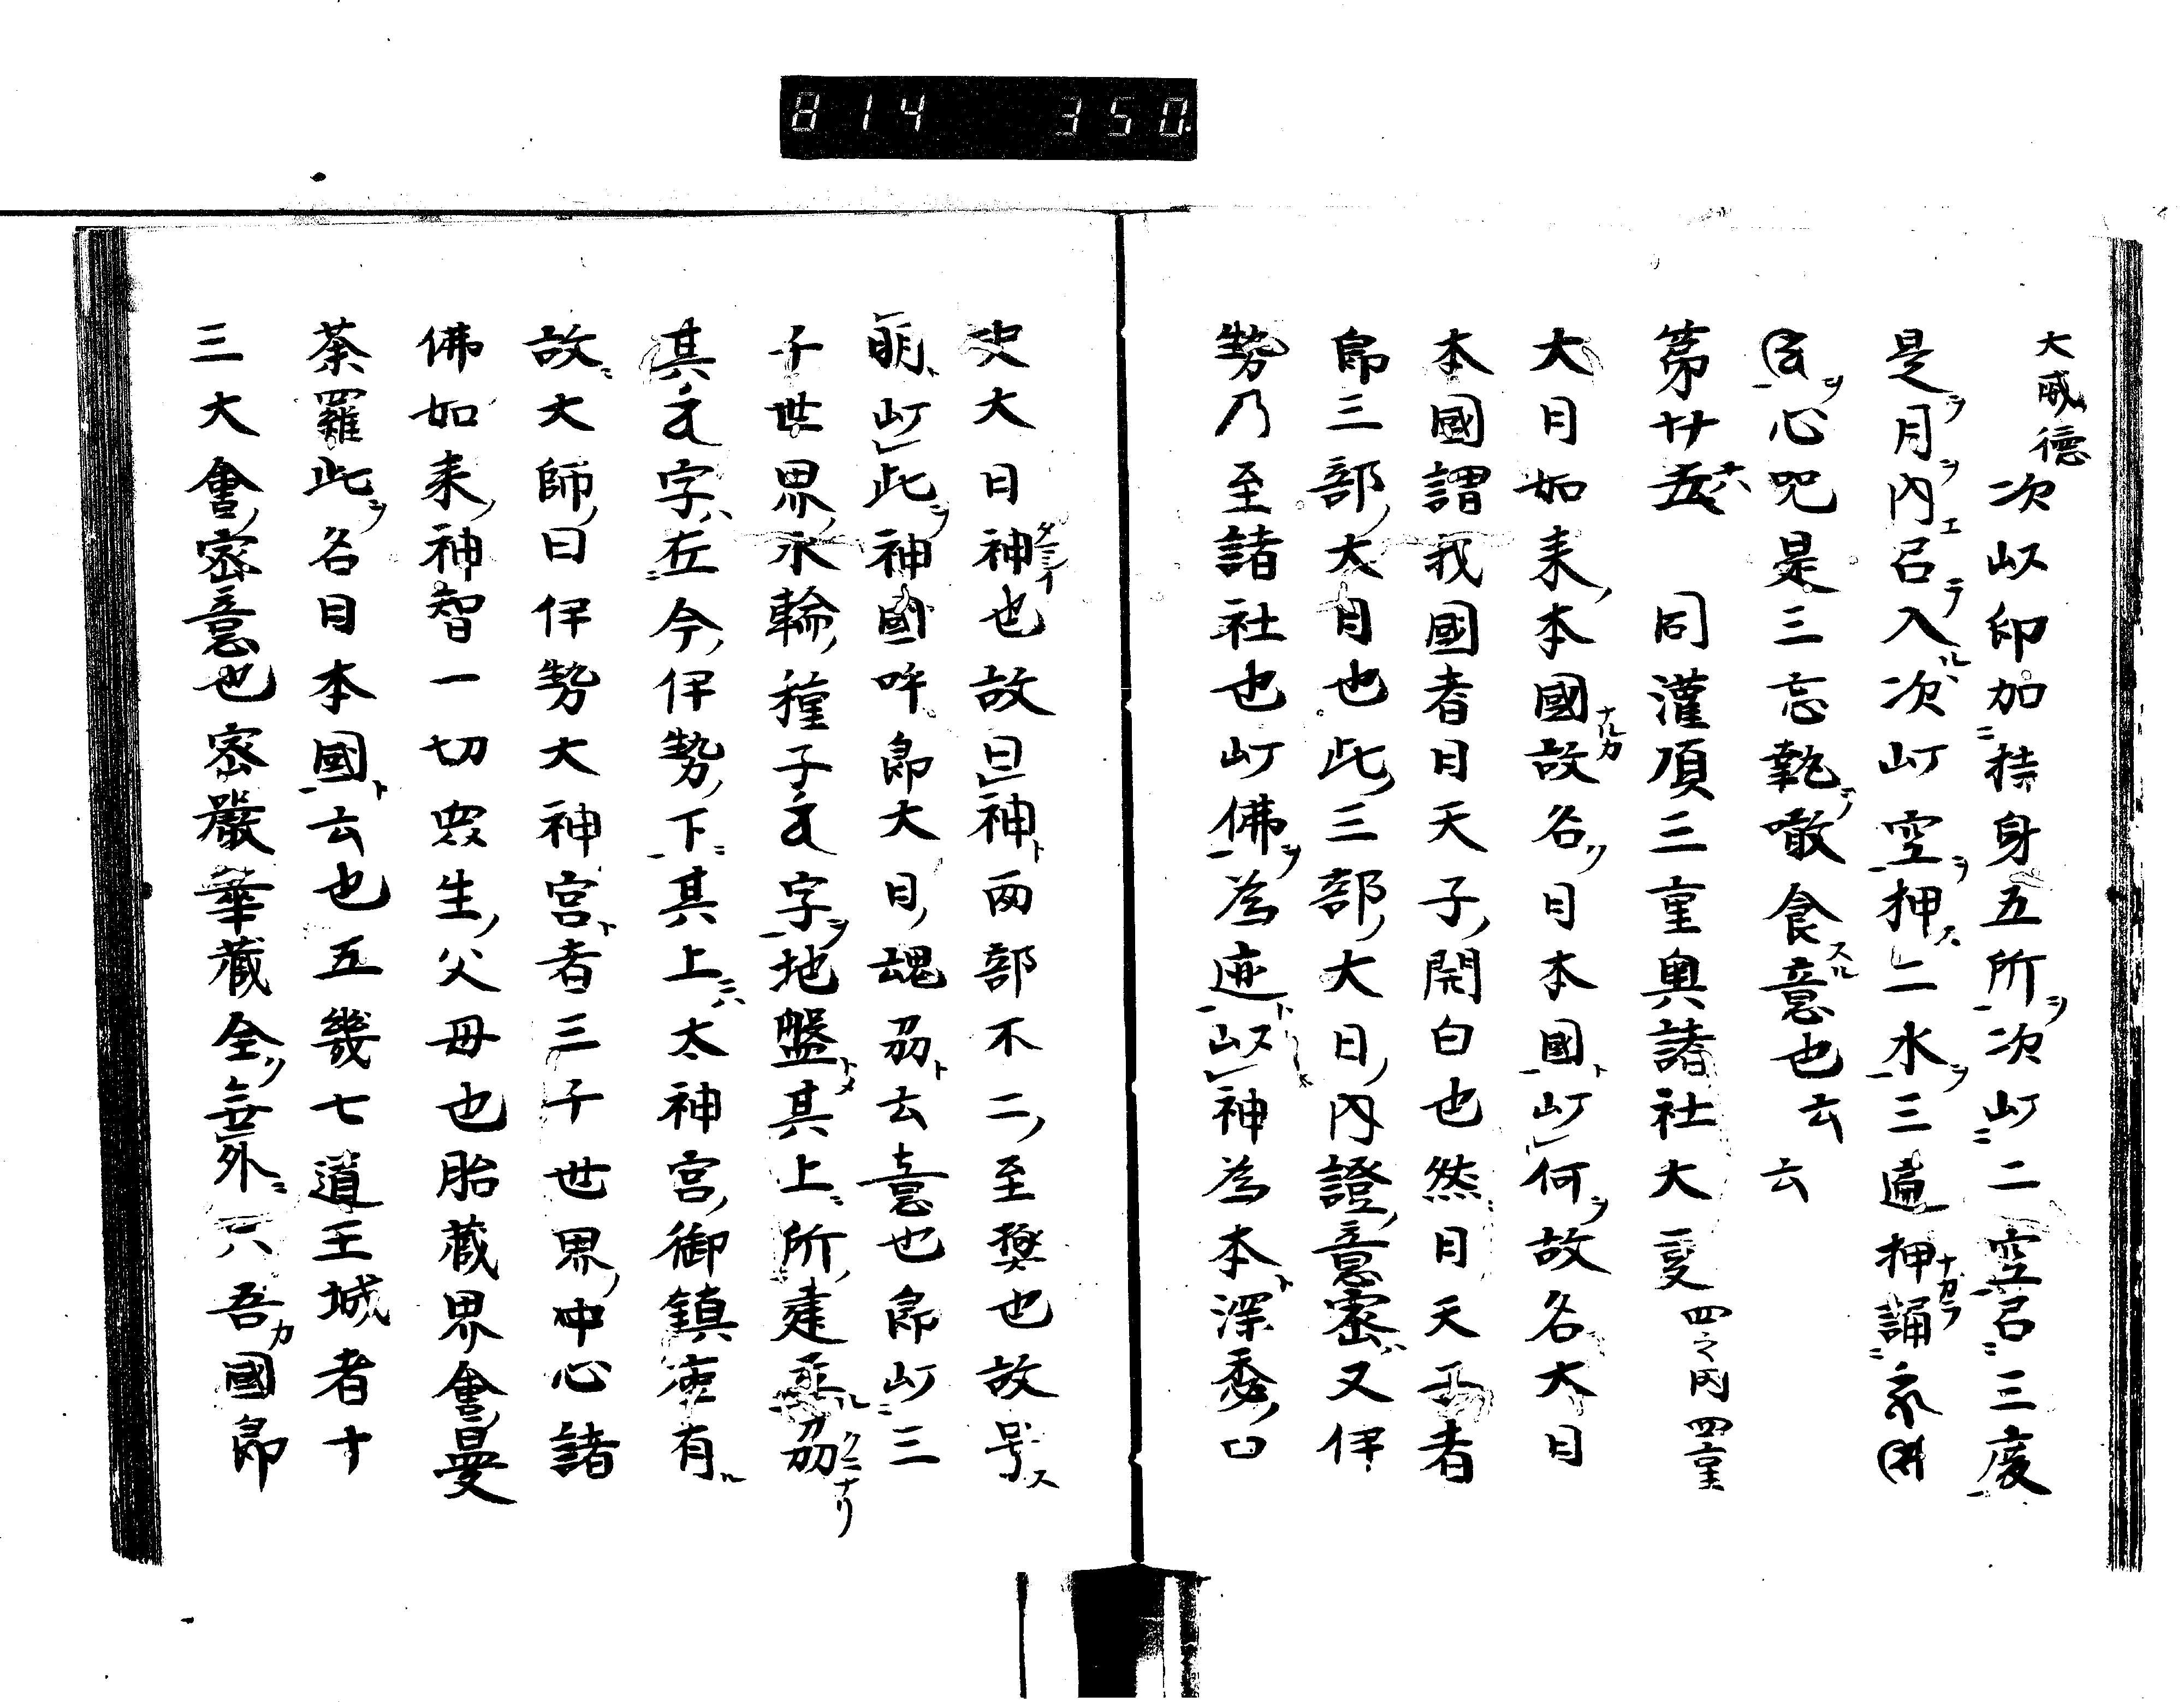 814 350.
大威德
次以印加持身五所次以二空召三度
是月内召入次以空押二水三遍押誦
心呪是三忘執噉食意也云云
第廿五六 同灌頂三重奥諸社大事 四之内四重
大日如来本國故名日本國以何故名大日
本國謂我國者日天子開白也然日天子者
即三部大日也此三部大日内證意密又伊
勢乃至諸社也以佛為迹以神為本深秘口
史大日神也故曰神両部不二至奬也故号ス
明以此神國呼即大日魂刕云意也即以三
千世界水輪種子字地盤其上所建刕クニナリ
其字在今伊勢下其上太神宮御鎮座有
故大師曰伊勢大神宮者三千世界中心諸
佛如来神智一切衆生父母也胎蔵界會曼
荼羅此名日本國云也五畿七道王城者十
三大會密意也密嚴華蔵全無外只吾カ國即